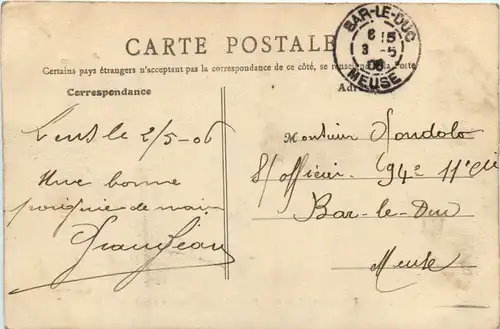 CARTE POSTALE
Certains pays étrangers n'acceptant pas la correspondance de ce côté, se renseigner à la Poste
Correspondance
Adr
BAR-LE-DUC
6 15
3 -5
06
MEUSE
le 2/5-06
Une bonne
poignée de main
Grandjean
Monsieur
S/officier. 94e 11e Cie
Bar-le-Duc
Meuse